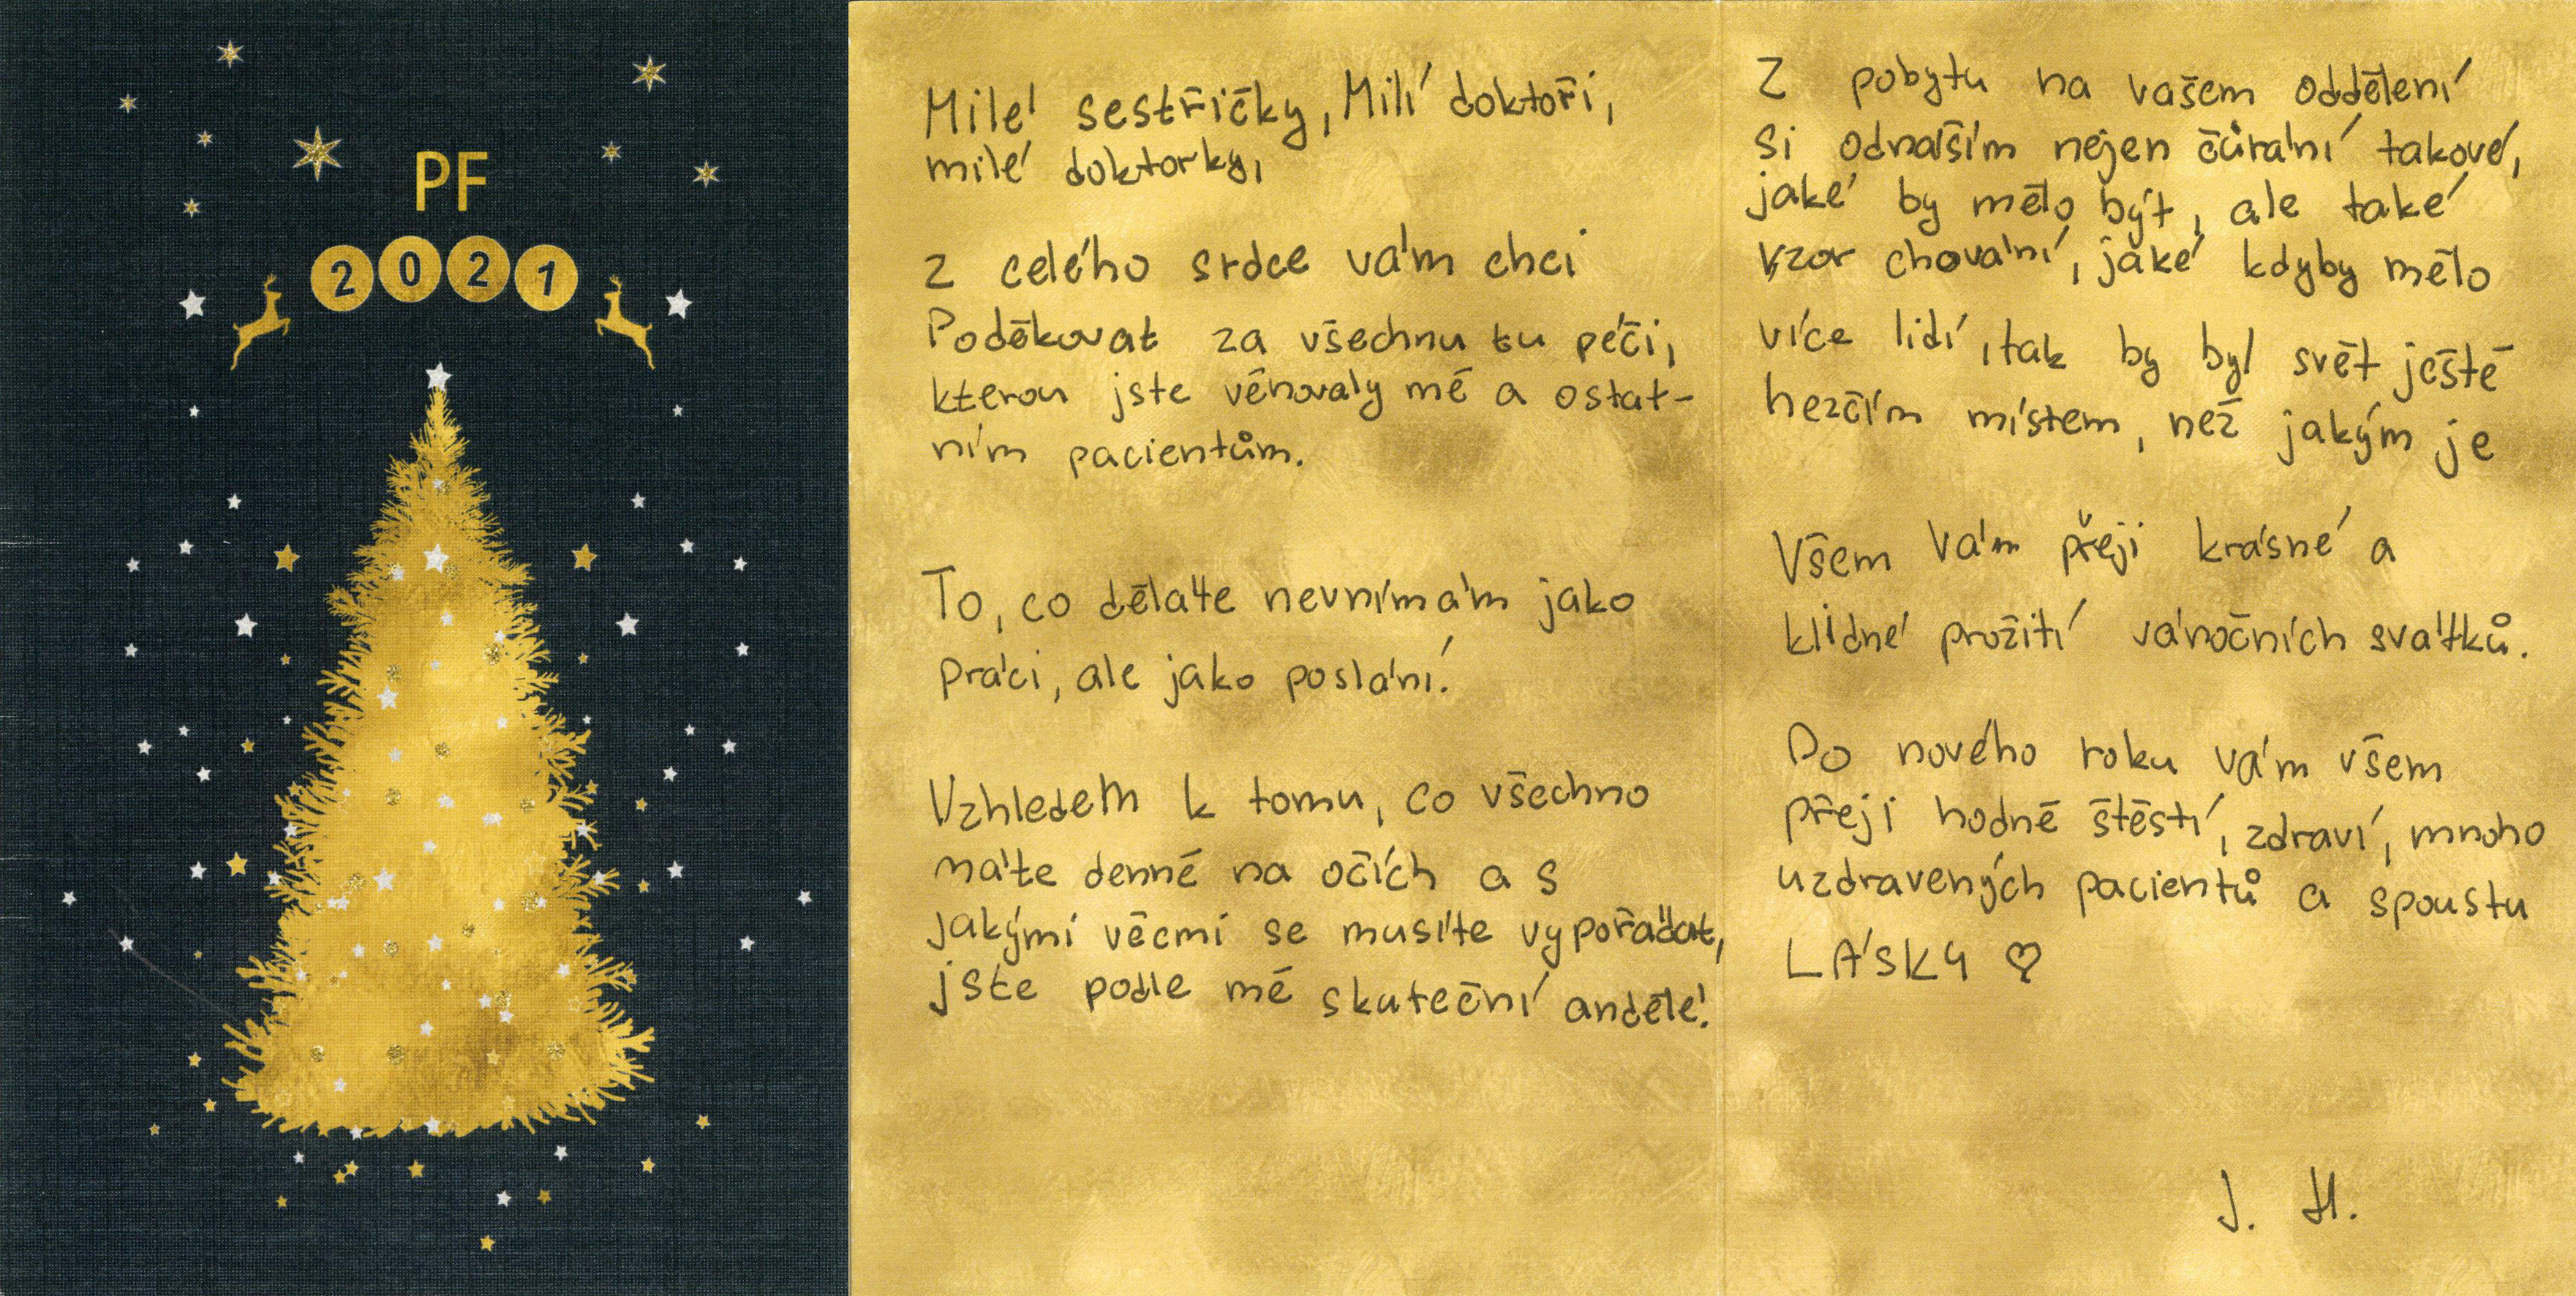 PF
2021
Milé sestřičky, Milí doktoři,
milé doktorky,
z celého srdce vám chci
Poděkovat za všechnu tu péči,
kterou jste věnovaly mě a ostat-
ním pacientům.
To, co děláte nevnímám jako
práci, ale jako poslání!
Vzhledem k tomu, co všechno
máte denně na očích a s
jakými věcmi se musíte vypořádat,
jste podle mě skuteční andělé!
Z pobytu na vašem oddělení
si odnáším nejen čůrání takové,
jaké by mělo být, ale také
vzor chování, jaké kdyby mělo
více lidí, tak by byl svět ještě
hezčím místem, než jakým je
Všem Vám přeji krásné a
klidné prožití vánočních svátků.
Do nového roku vám všem
přeji hodně štěstí, zdraví, mnoho
uzdravených pacientů a spoustu
LÁSKY ♡
J. H.